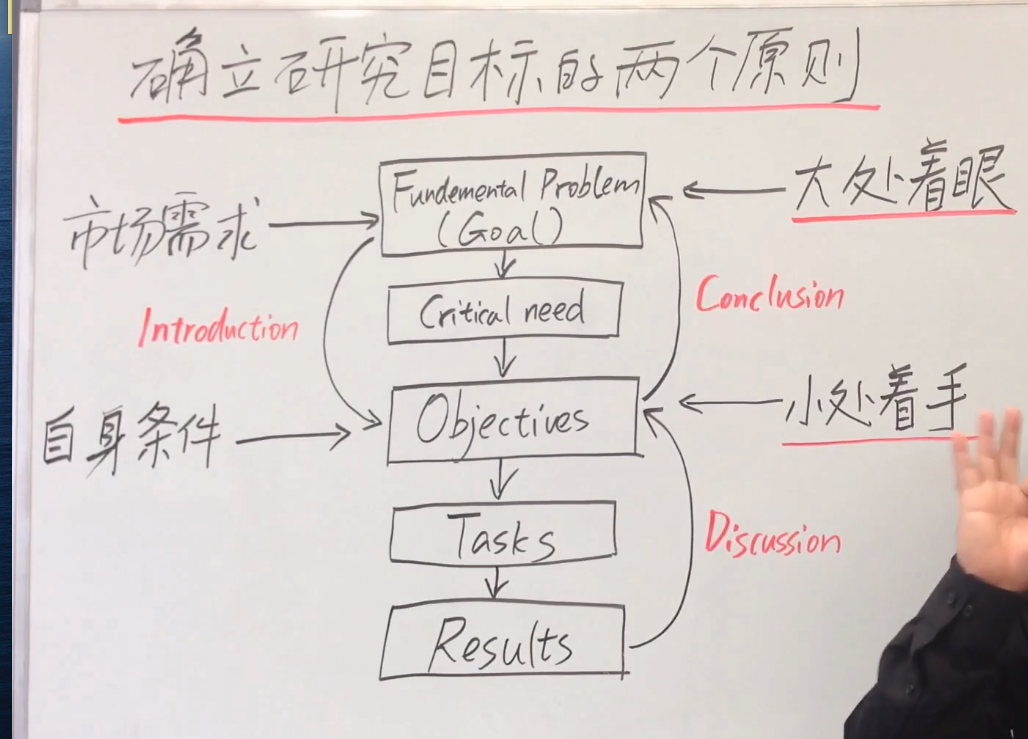 确立研究目标的两个原则
市场需求
Fundemental Problem
(Goal)
大处着眼
Critical need
Introduction
Conclusion
自身条件
Objectives
小处着手
Tasks
Discussion
Results